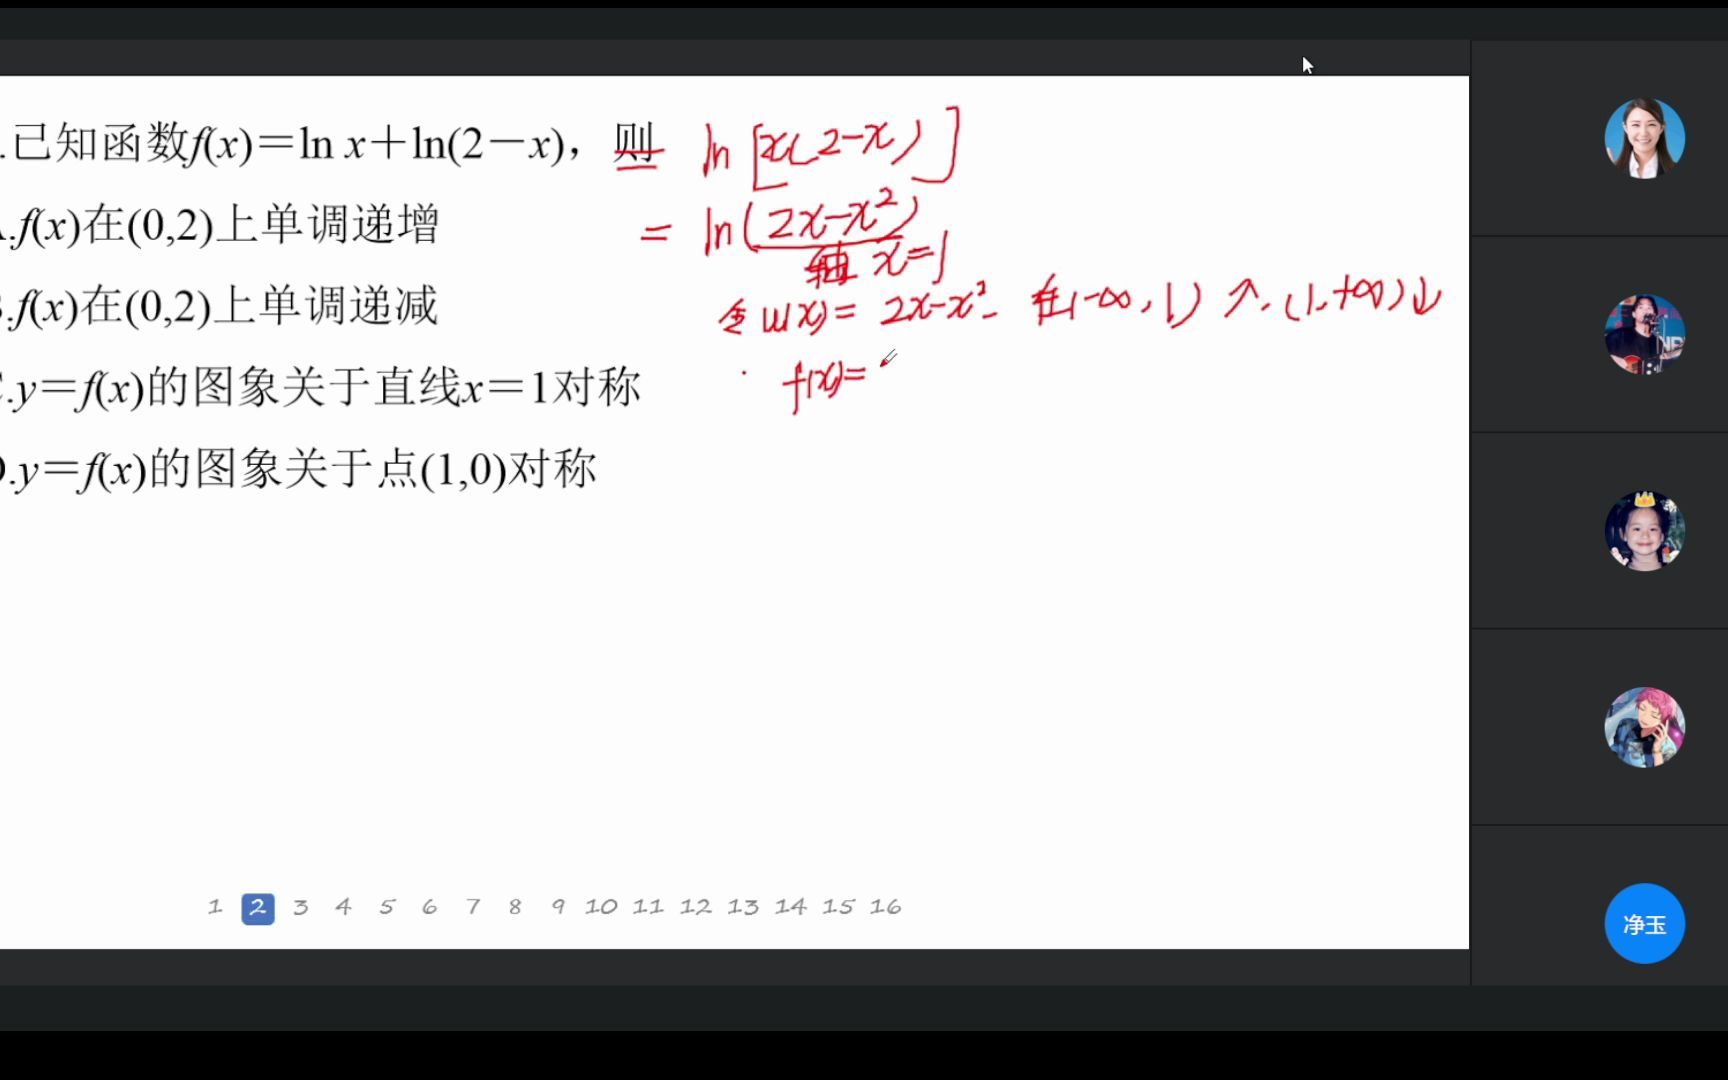 .已知函数f(x)＝ln x＋ln(2－x)，则
ln[x(2-x)]
.f(x)在(0,2)上单调递增
= ln(2x-x²)
轴 x=1
.f(x)在(0,2)上单调递减
令 u(x)= 2x-x². 在(-∞,1)↗.(1,+∞)↓
.y＝f(x)的图象关于直线x＝1对称
f(x)=
.y＝f(x)的图象关于点(1,0)对称
1 2 3 4 5 6 7 8 9 10 11 12 13 14 15 16
净玉